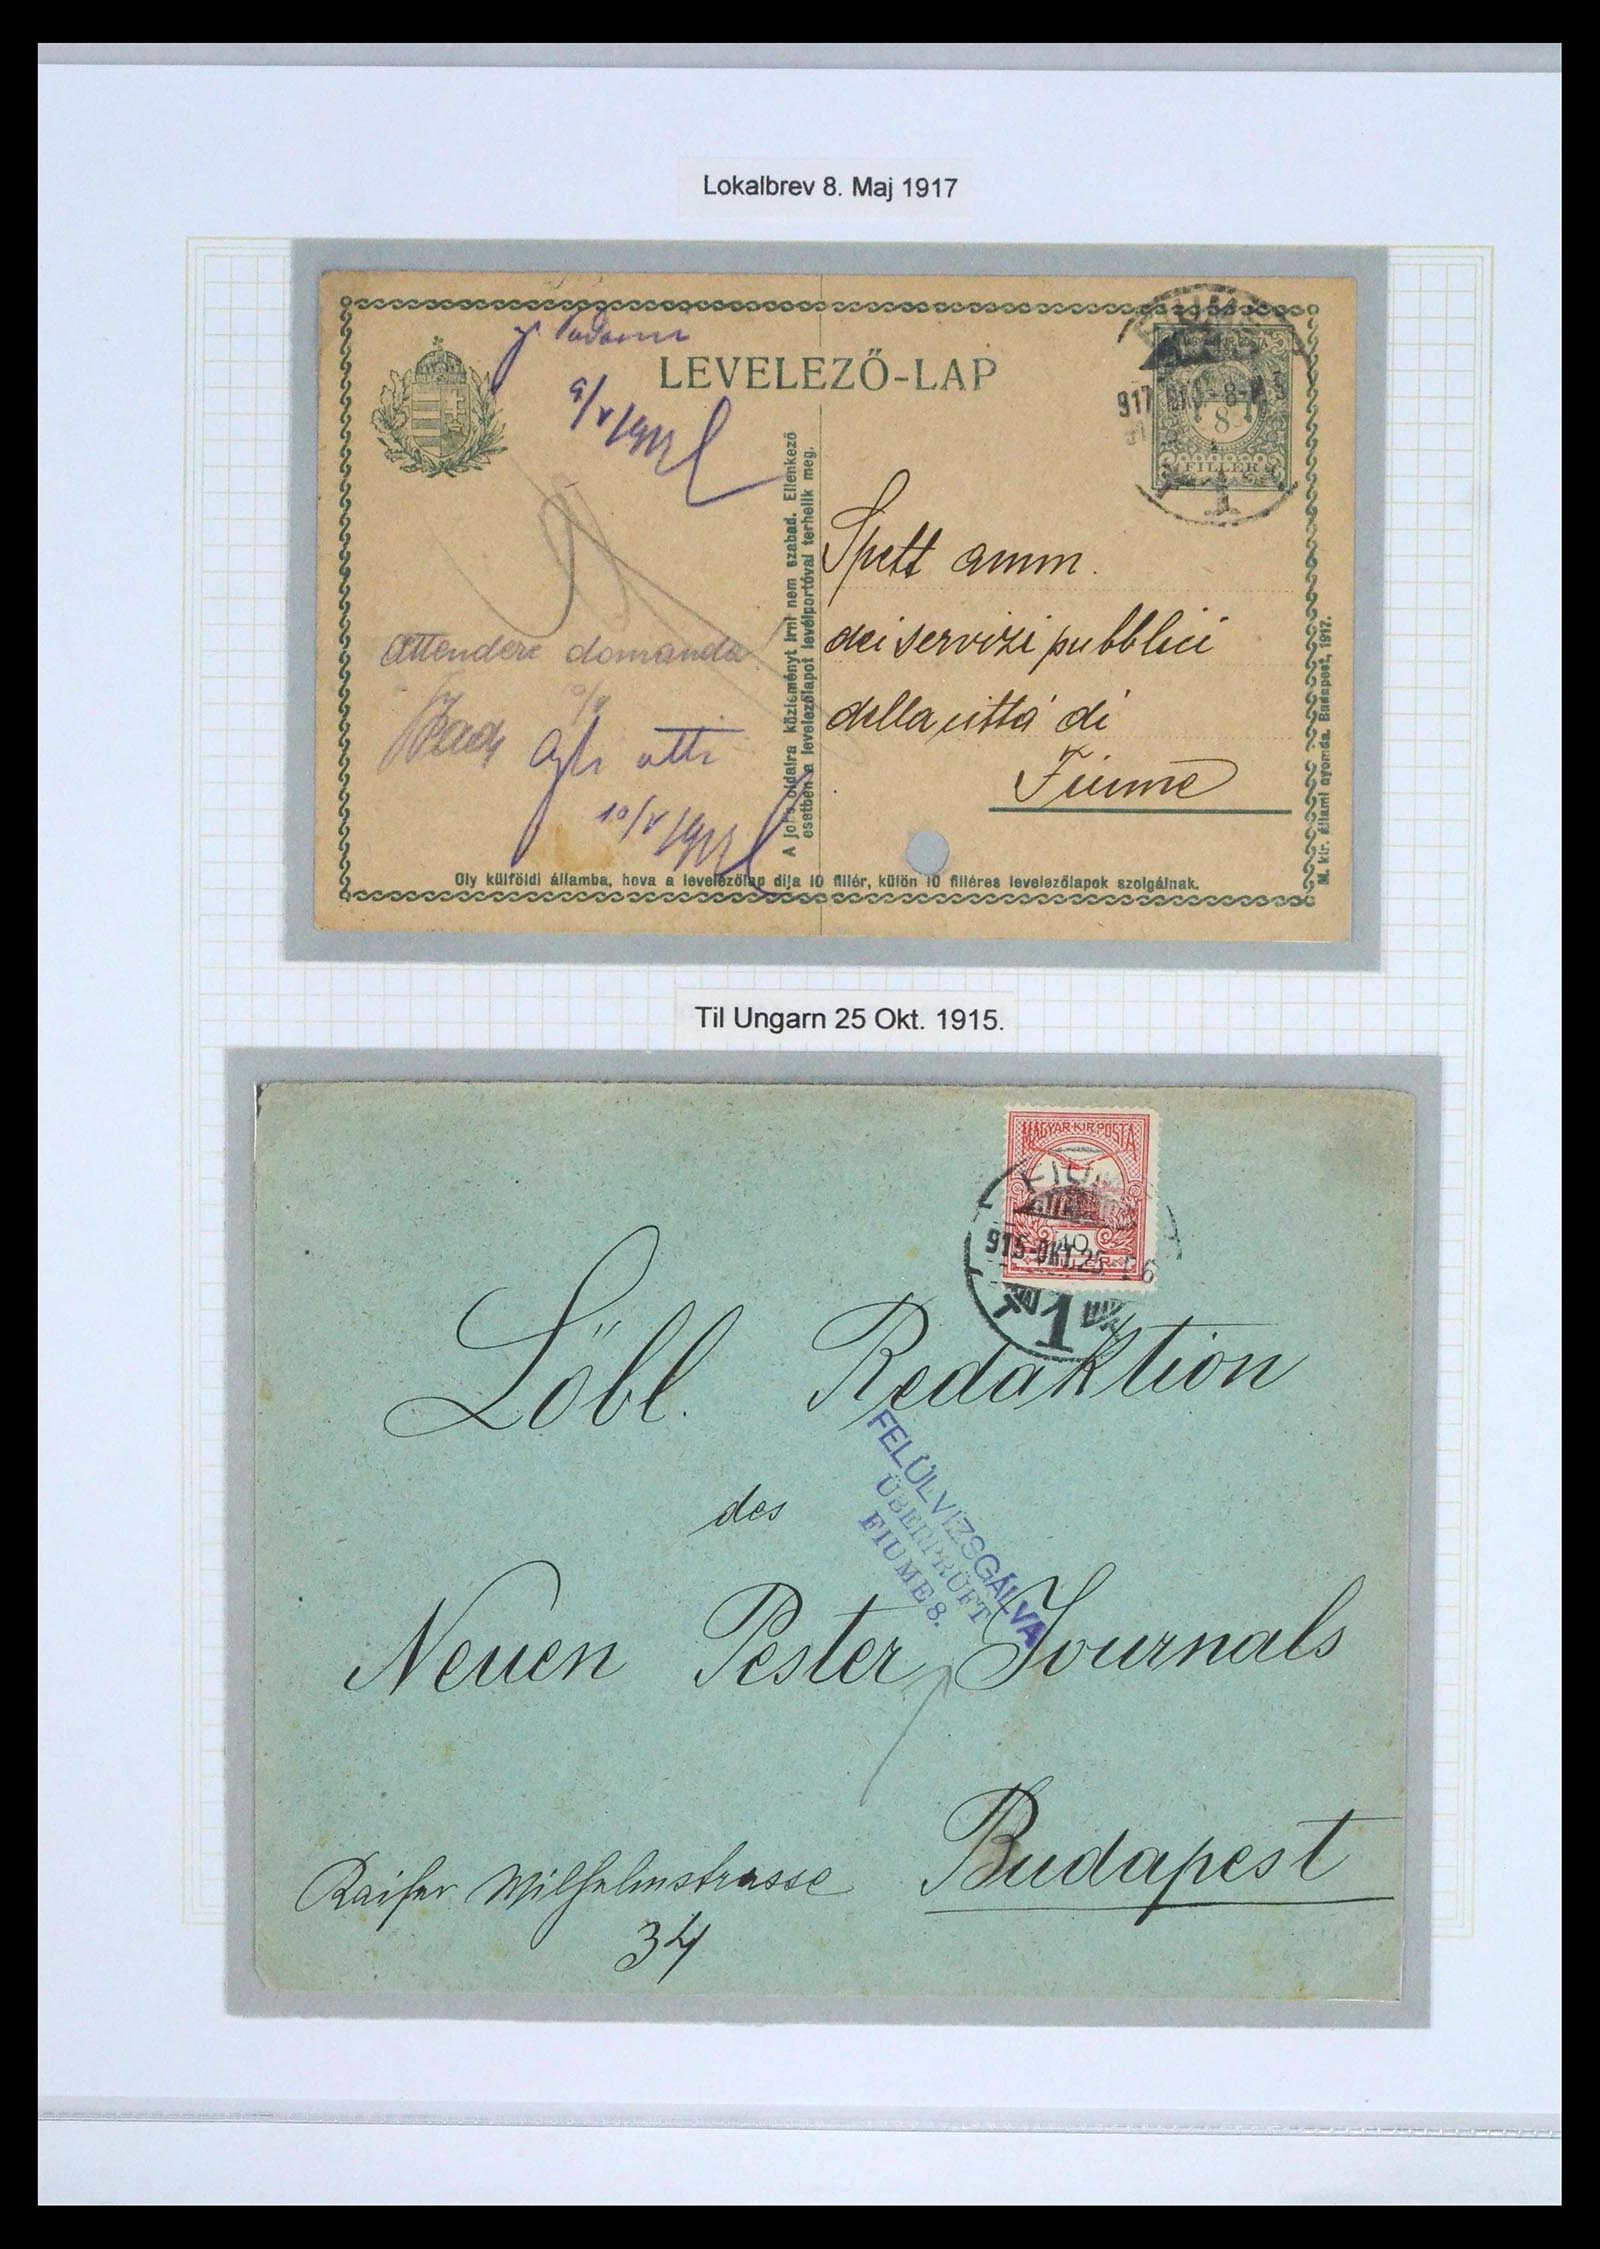 Lokalbrev 8. Maj 1917
LEVELEZŐ-LAP
9/V 1917
8
FILLÉR
917 8
1
A jobb oldalra közleményt írni nem szabad. Ellenkező
esetben a levelezőlapot levélportóval terhelik meg.
Spett amm.
dei servizi pubblici
della città di
Fiume
attendere domanda
10/V
Agli atti
10/V 1917
Oly külföldi államba, hova a levelezőlap díja 10 fillér, külön 10 filléres levelezőlapok szolgálnak.
M. kir. állami nyomda. Budapest, 1917.
Til Ungarn 25 Okt. 1915.
MAGYAR·KIR·POSTA
10
FIUME
915 OKT. 25
1
Löbl. Redaktion
des
FELÜLVIZSGÁLVA
ÜBERPRÜFT
FIUME 8.
Neuen Pester Journals
Budapest
Kaiser Wilhelmstrasse
34